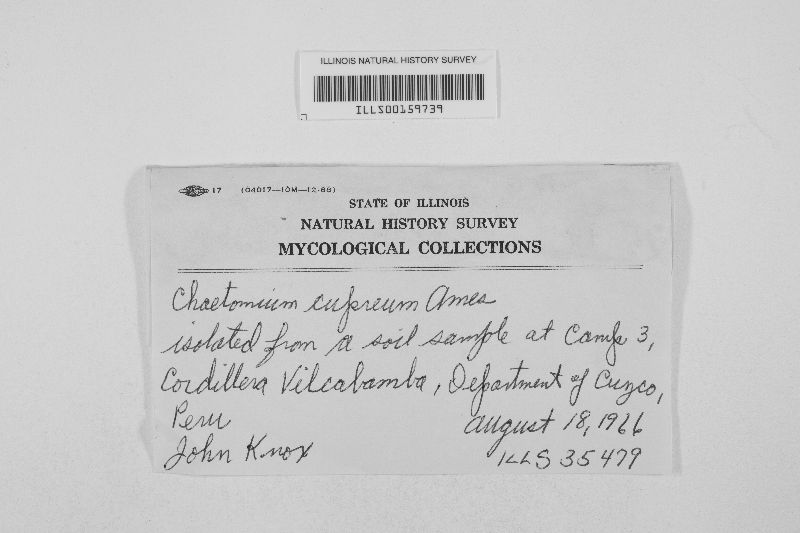 ILLINOIS NATURAL HISTORY SURVEY
ILLS00159739
17 (04017—10M—12-66)
STATE OF ILLINOIS
NATURAL HISTORY SURVEY
MYCOLOGICAL COLLECTIONS
Chaetomium cupreum Ames
isolated from a soil sample at Camp 3,
Cordillera Vilcabamba, Department of Cuzco,
Peru
August 18, 1966
John Knox
ILLS 35479